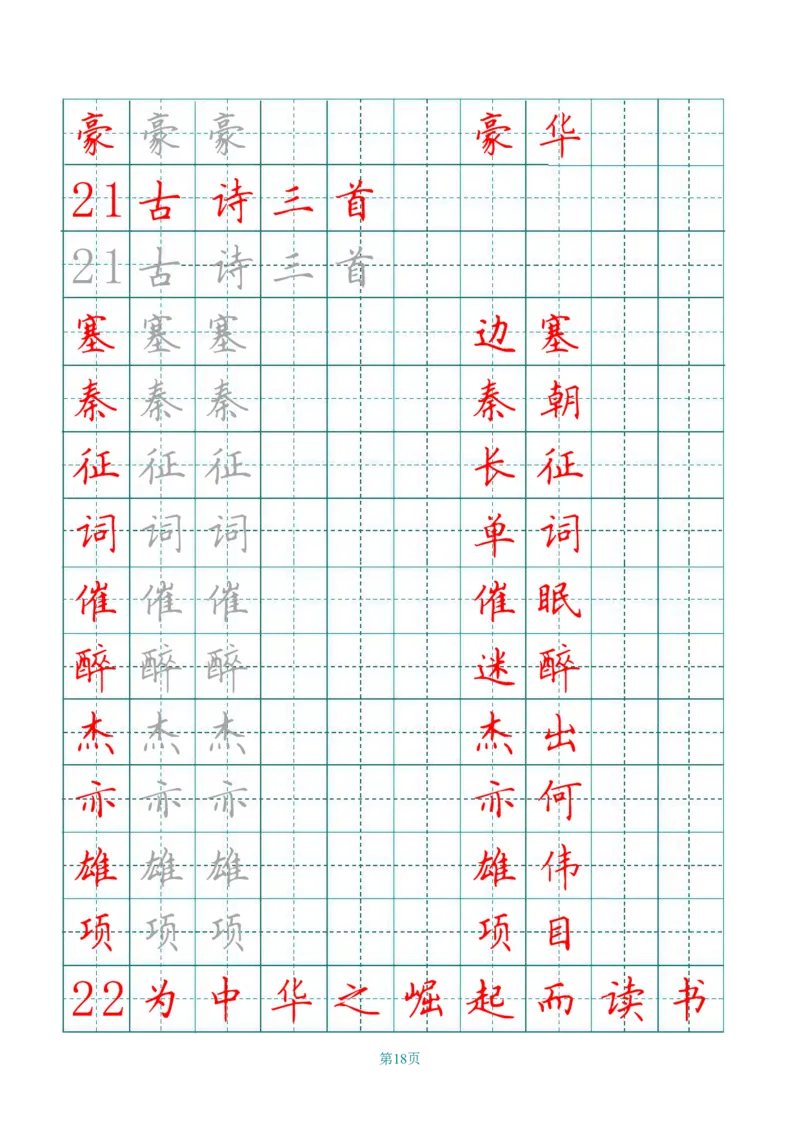 豪豪豪 豪华
21古诗三首
21古诗三首
塞塞塞 边塞
秦秦秦 秦朝
征征征 长征
词词词 单词
催催催 催眠
醉醉醉 迷醉
杰杰杰 杰出
亦亦亦 亦何
雄雄雄 雄伟
项项项 项目
22为中华之崛起而读书
第18页